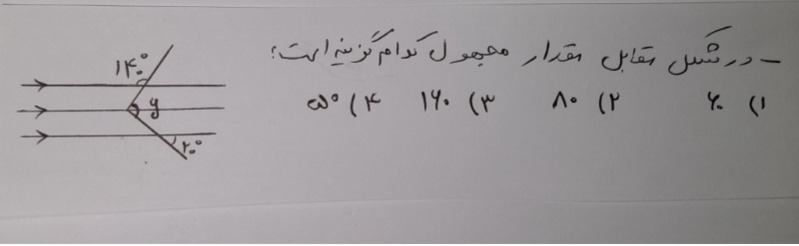 - در شکل مقابل مقدار مجهول کدام گزینه است؛
۱) ۶۰ ۲) ۸۰ ۳) ۱۶۰ ۴) ۵۰
۱۴۰°
y
۲۰°